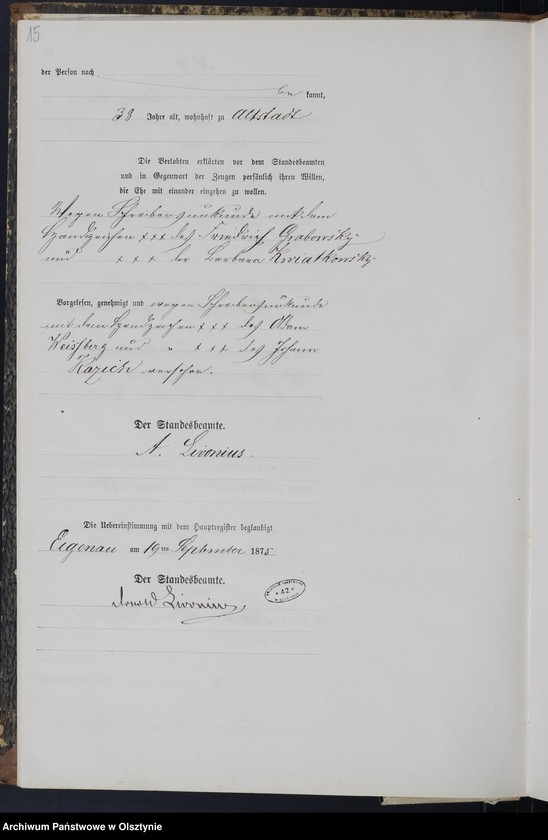 15
der Person nach
be kannt,
38 Jahre alt, wohnhaft zu Altstadt
Die Verlobten erklärten vor dem Standesbeamten
und in Gegenwart der Zeugen persönlich ihren Willen,
die Ehe mit einander eingehen zu wollen.
Wegen Schreibensunkunde mit dem
Handzeichen +++ des Friedrich Grabowsky
und +++ der Barbara Kwiatkowsky
Vorgelesen, genehmigt und wegen Schreibensunkunde
mit dem Handzeichen +++ des Adam
Weissberg und " +++ des Johann
Kazich versehen.
Der Standesbeamte.
A. Livonius.
Die Uebereinstimmung mit dem Hauptregister beglaubigt
Elgenau am 19ten September 1875
Der Standesbeamte.
Arnold Livonius
* 42 *
Archiwum Państwowe w Olsztynie